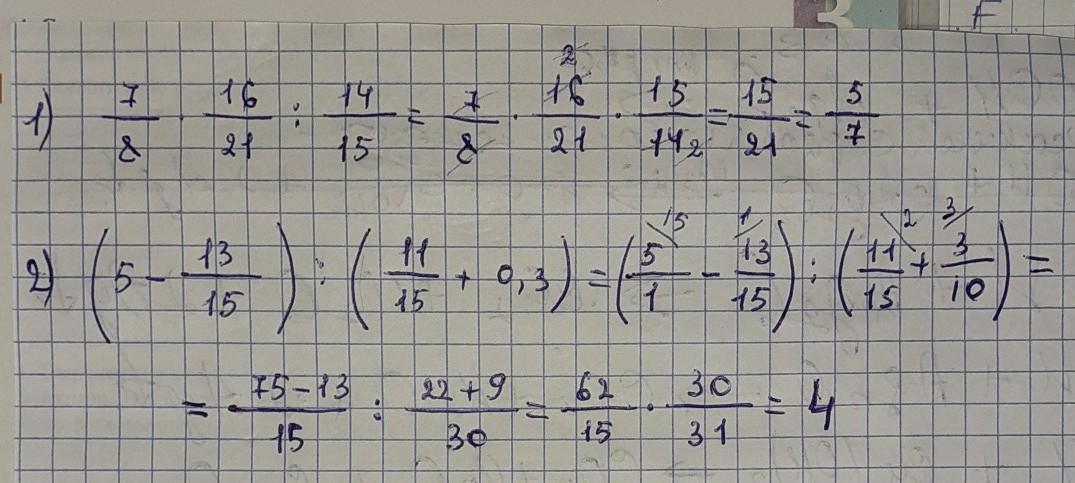 3 F
1) 7/8 · 16/21 : 14/15 = 7/8 · 16/21 · 15/14 = 15/21 = 5/7
2 2
2) (5 − 13/15) : (11/15 + 0,3) = (5/1 − 13/15) : (11/15 + 3/10) =
15 1 2 3
= 75−13/15 : 22+9/30 = 62/15 · 30/31 = 4